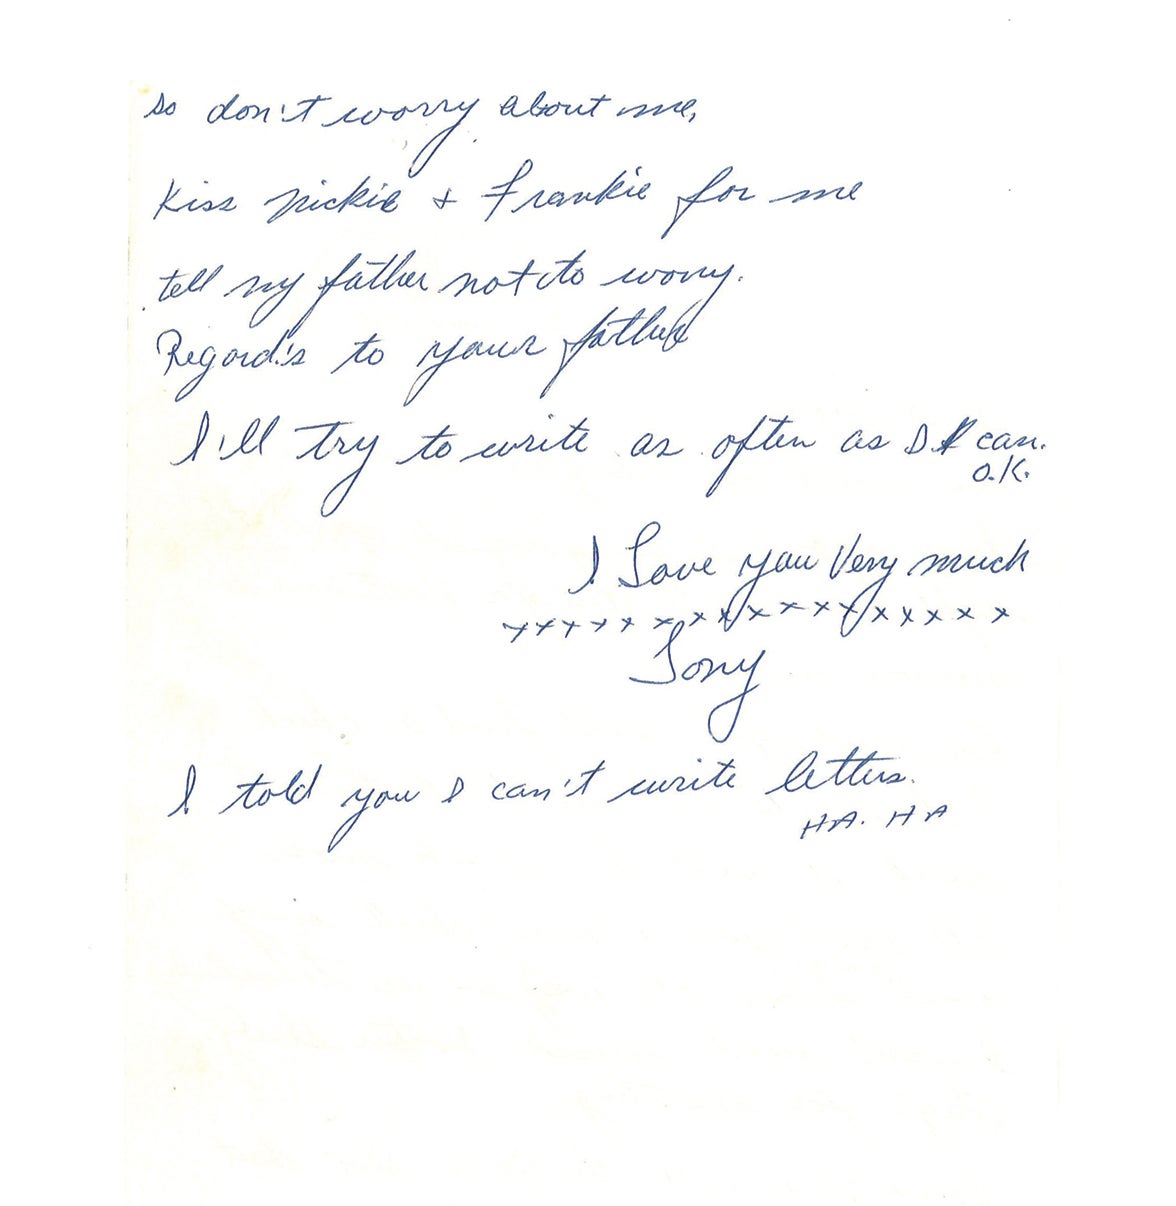 so don't worry about me,
Kiss Nickie + Frankie for me
tell my father not to worry.
Regard's to your father
I'll try to write as often as I can.
O.K.
I Love you Very much
xxxxxxxxxxxxxxxxxx
Tony
I told you I can't write letters.
HA. HA